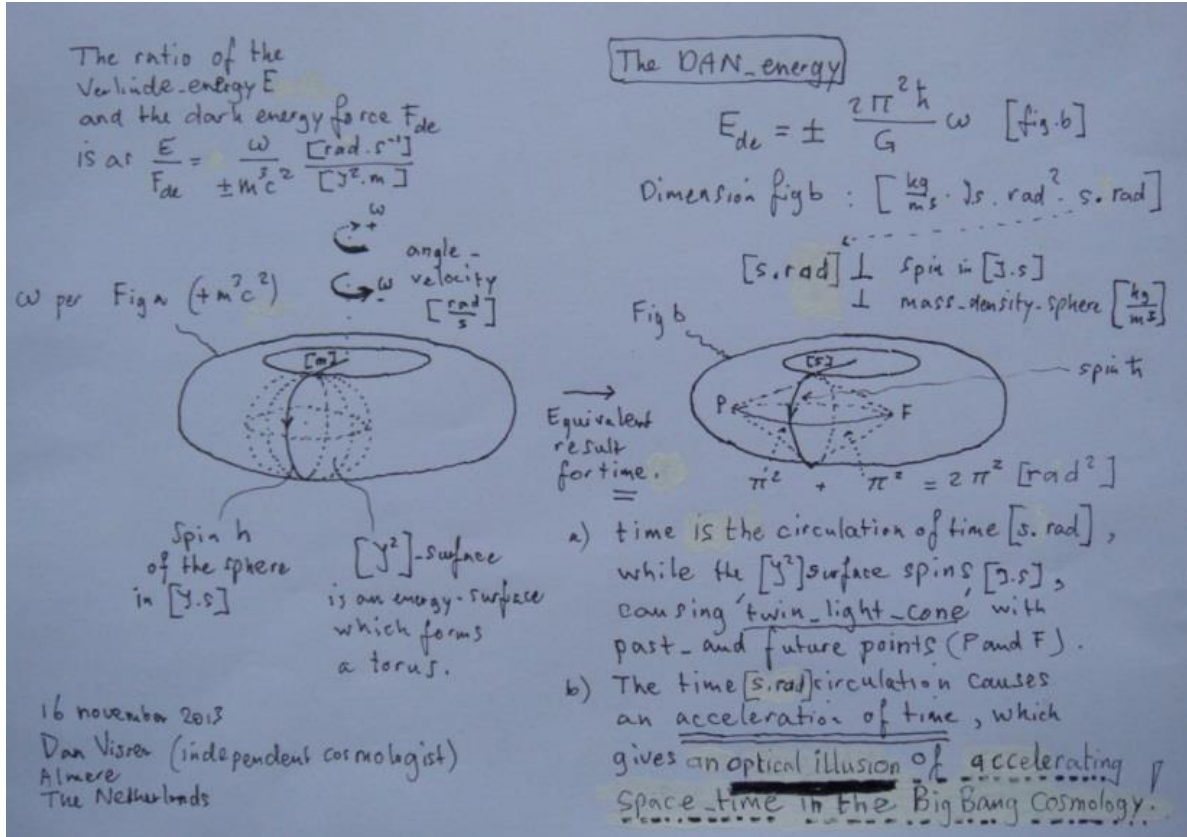 The ratio of the
Verlinde_energy E
and the dark energy force F_de
is as E/F_de = ω/±m³c² [rad.s⁻¹]/[J².m]
ω +
angle_
velocity
[rad/s]
ω -
ω per Fig a (+m³c²)
[m]
Spin ħ
of the sphere
in [J.s]
[J²]-surface
is an energy-surface
which forms
a torus.
16 november 2013
Dan Visser (independent cosmologist)
Almere
The Netherlands
Equivalent
result
for time.
The DAN_energy
E_de = ± 2π²ħ/G ω [fig.b]
Dimension fig b : [kg/m³ . Js . rad² . s.rad]
[s.rad] ⊥ spin in [J.s]
⊥ mass_density_sphere [kg/m³]
Fig b
[s]
spin ħ
P
F
π² + π² = 2π² [rad²]
a) time is the circulation of time [s.rad],
while the [J²]surface spins [J.s],
causing 'twin_light_cone' with
past_ and future points (P and F).
b) The time [s.rad] circulation causes
an acceleration of time, which
gives an optical illusion of accelerating
Space_time in the Big Bang Cosmology!